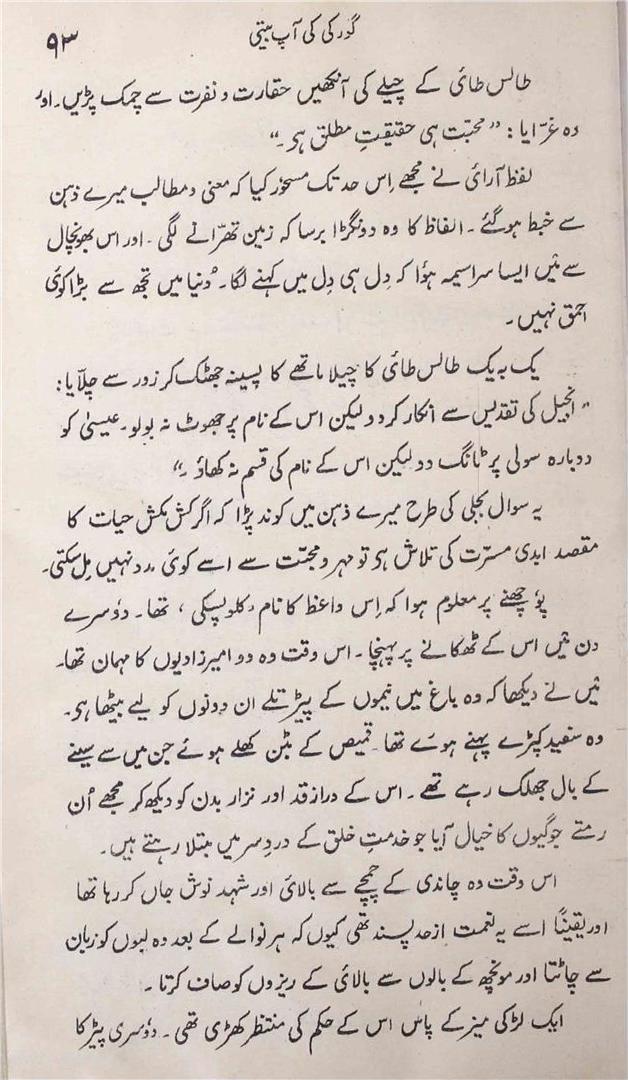 گورکی کی آپ بیتی
۹۳
طالس طائی کے چیلے کی آنکھیں حقارت و نفرت سے چمک پڑیں۔ اور
وہ غرّایا : ”محبّت ہی حقیقتِ مطلق ہی۔“
لفظ آرائی نے مجھے اِس حد تک مسحور کیا کہ معنی و مطالب میرے ذہن
سے خبط ہو گئے۔ الفاظ کا وہ دونگڑا برسا کہ زمین تھرّانے لگی۔ اور اس بھونچال
سے مَیں ایسا سراسیمہ ہؤا کہ دِل ہی دِل میں کہنے لگا۔ دُنیا میں تجھ سے بڑا کوئی
احمق نہیں۔
یک بہ یک طالس طائی کا چیلا ماتھے کا پسینہ جھٹک کر زور سے چلّایا :
”انجیل کی تقدیس سے انکار کردو لیکن اس کے نام پر جھوٹ نہ بولو۔ عیسیٰ کو
دوبارہ سولی پر ٹانگ دو لیکن اس کے نام کی قسم نہ کھاؤ۔“
یہ سوال بجلی کی طرح میرے ذہن میں کوند پڑا کہ اگر کش مکش حیات کا
مقصد ابدی مسرّت کی تلاش ہی تو مہر و محبّت سے اسے کوئی مدد نہیں مِل سکتی۔
پوُچھنے پر معلوم ہوا کہ اِس واعظ کا نام ’کلوپسکی‘ تھا۔ دوُسرے
دن مَیں اس کے ٹھکانے پر پہنچا۔ اس وقت وہ دو امیر زادیوں کا مہمان تھا۔
مَیں نے دیکھا کہ وہ باغ میں نیموں کے پیڑ تلے ان دونوں کو لیے بیٹھا ہی۔
وہ سفید کپڑے پہنے ہوئے تھا۔ قمیص کے بٹن کھلے ہوئے جن میں سے سینے
کے بال جھلک رہے تھے۔ اس کے دراز قد اور نزار بدن کو دیکھ کر مجھے اُن
رمتے جوگیوں کا خیال آیا جو خدمتِ خلق کے دردِ سر میں مبتلا رہتے ہیں۔
اس وقت وہ چاندی کے چمچے سے بالائی اور شہد نوش جاں کر رہا تھا
اور یقیناً اسے یہ نعمت ازحد پسند تھی کیوں کہ ہر نوالے کے بعد وہ لبوں کو زبان
سے چاٹتا اور مونچھ کے بالوں سے بالائی کے ریزوں کو صاف کرتا۔
ایک لڑکی میز کے پاس اس کے حکم کی منتظر کھڑی تھی۔ دوُسری پیڑ کا